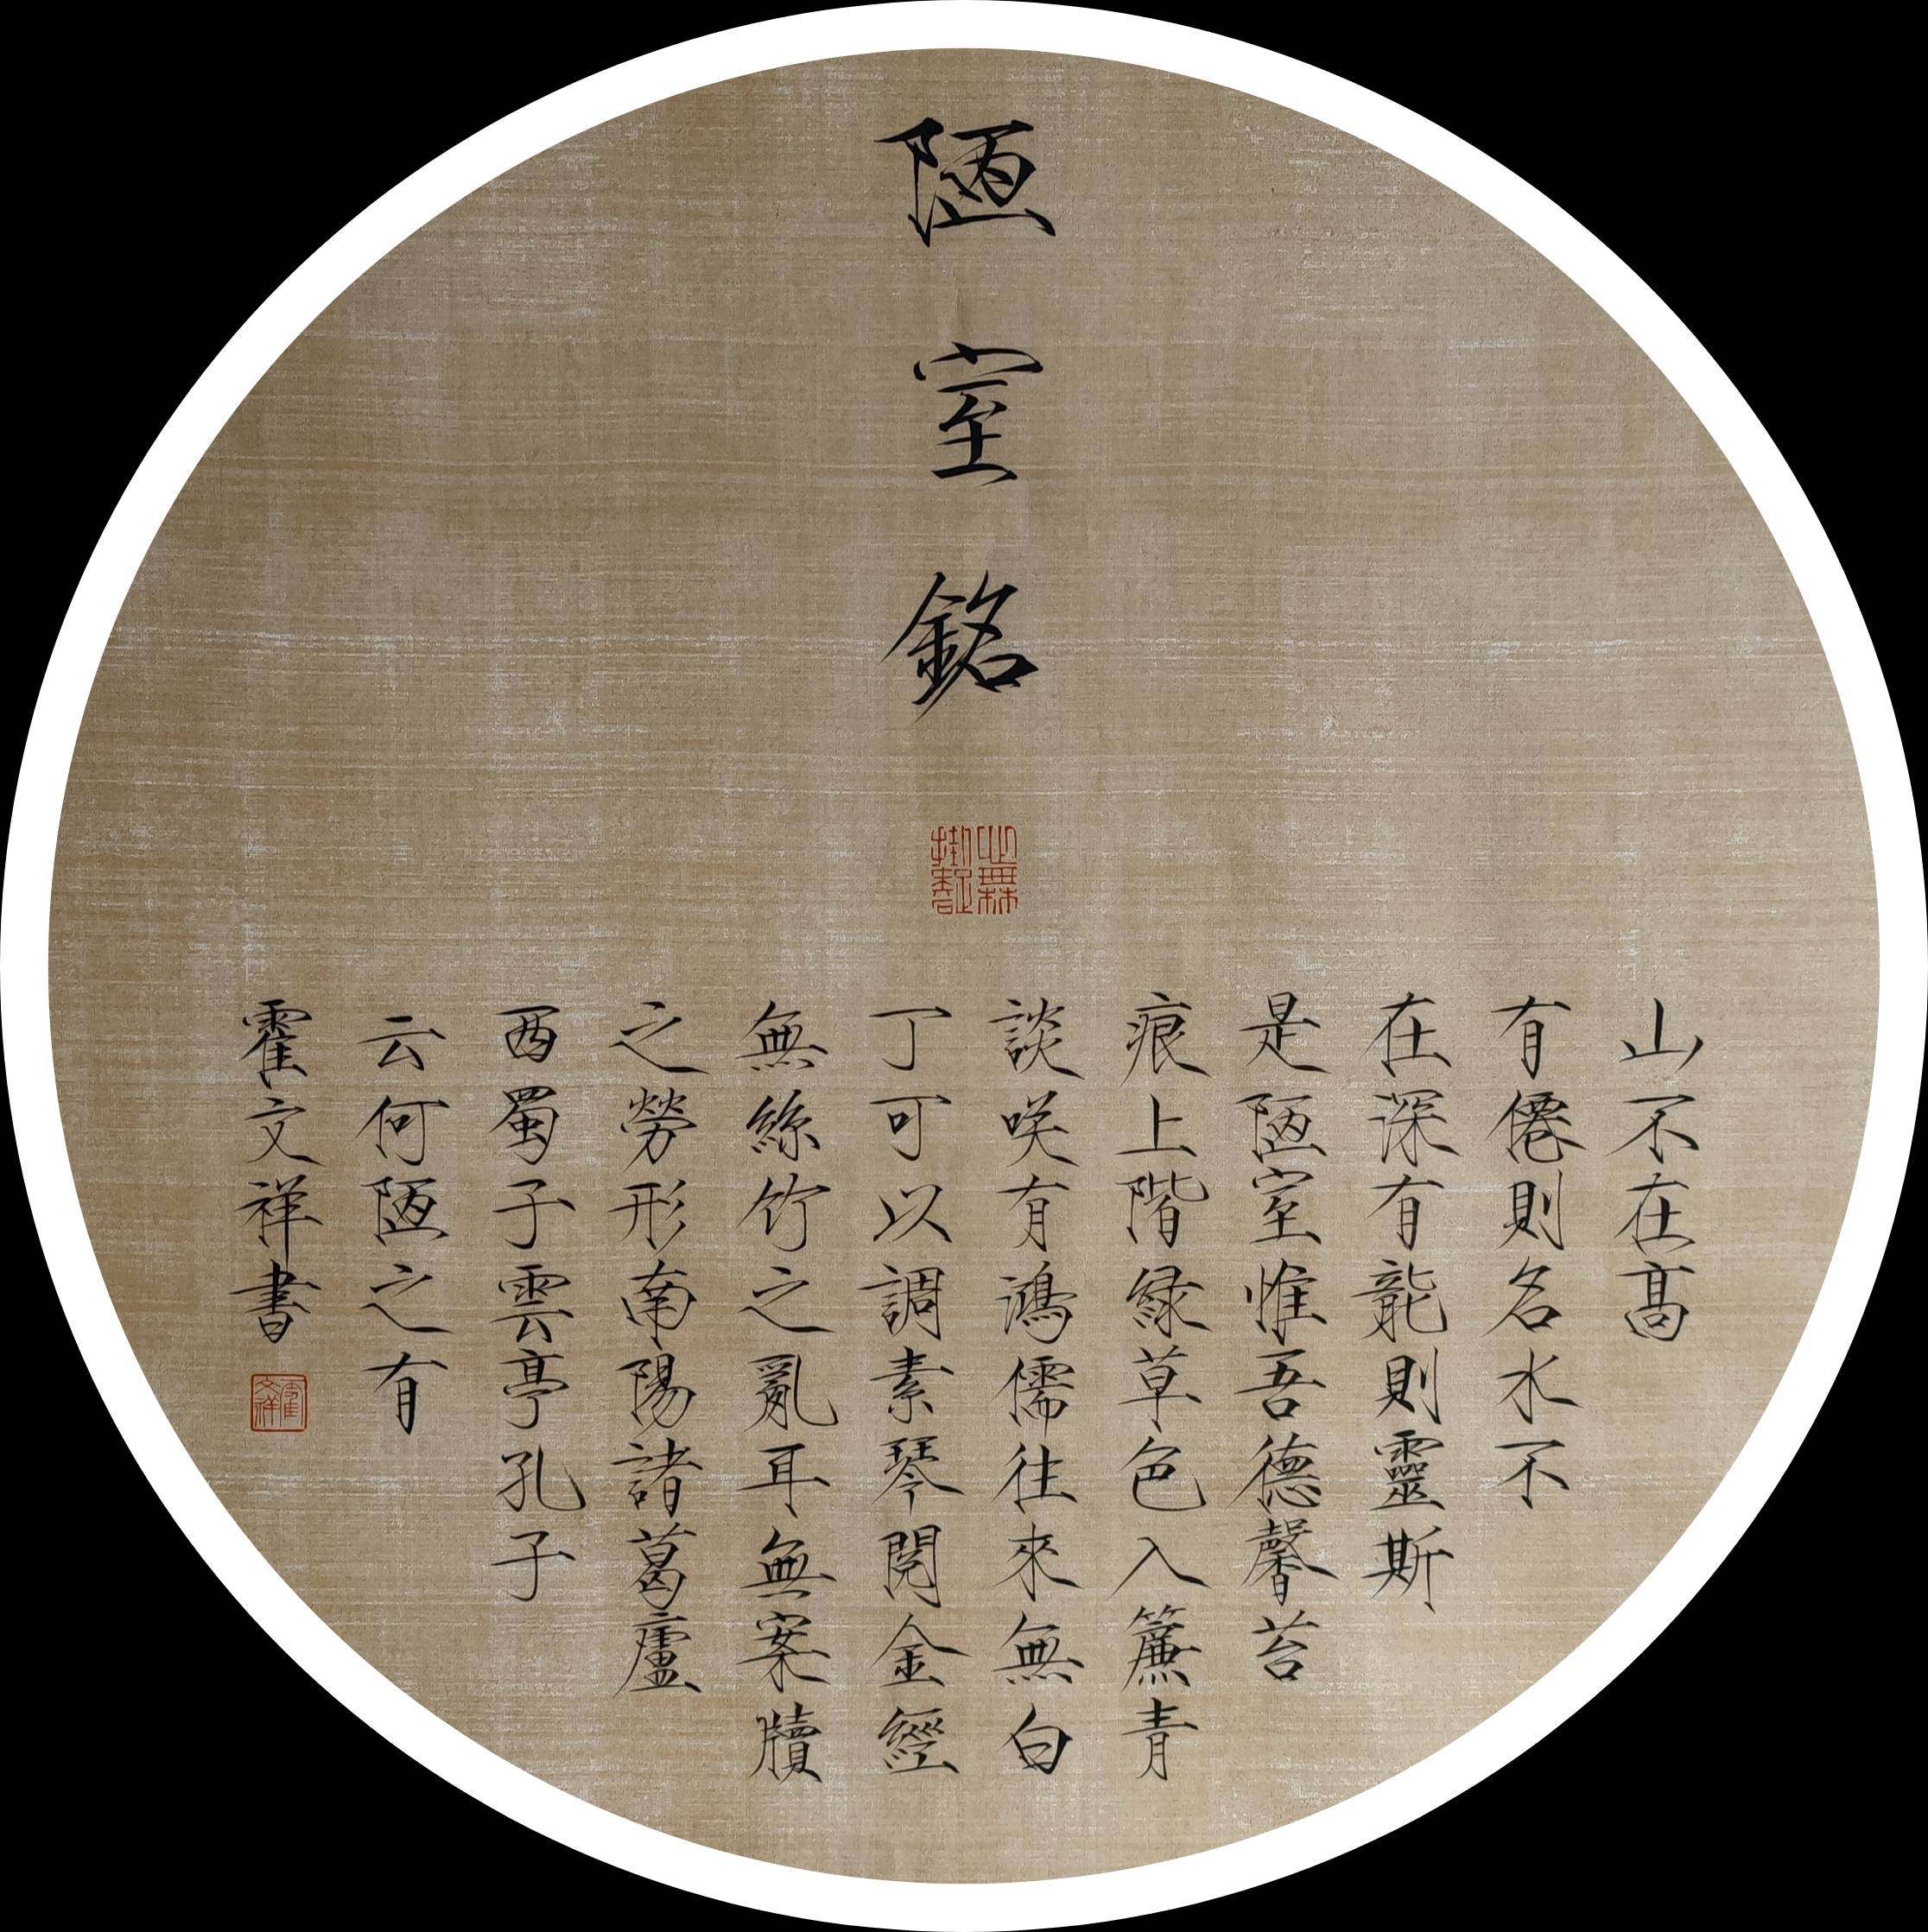 陋室銘
山不在高
有僊則名水不
在深有龍則靈斯
是陋室惟吾德馨苔
痕上階緑草色入簾青
談咲有鴻儒往來無白
丁可以調素琴閱金經
無絲竹之亂耳無案牘
之勞形南陽諸葛廬
西蜀子雲亭孔子
云何陋之有
霍文祥書
霍文祥